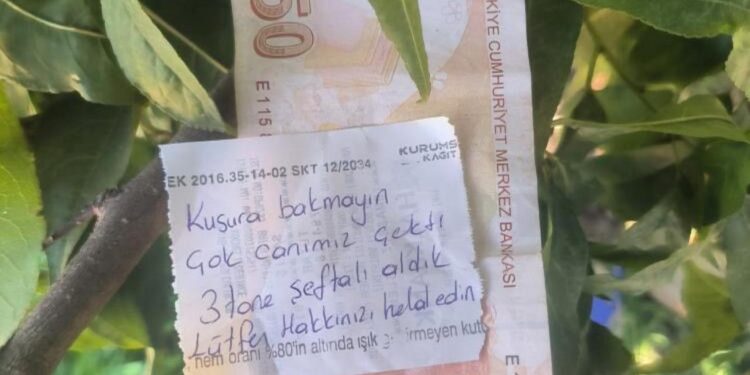 50
E 115 8
TÜRKİYE CUMHURİYET MERKEZ BANKASI
E
KURUMS
KAĞIT
EK 2016.35-14-02 SKT 12/2034
Kusura bakmayın
Çok canımız çekti
3 tane şeftali aldık
Lütfen Hakkınızı helal edin
nem oranı %80'in altında ışık
irmeyen kutu